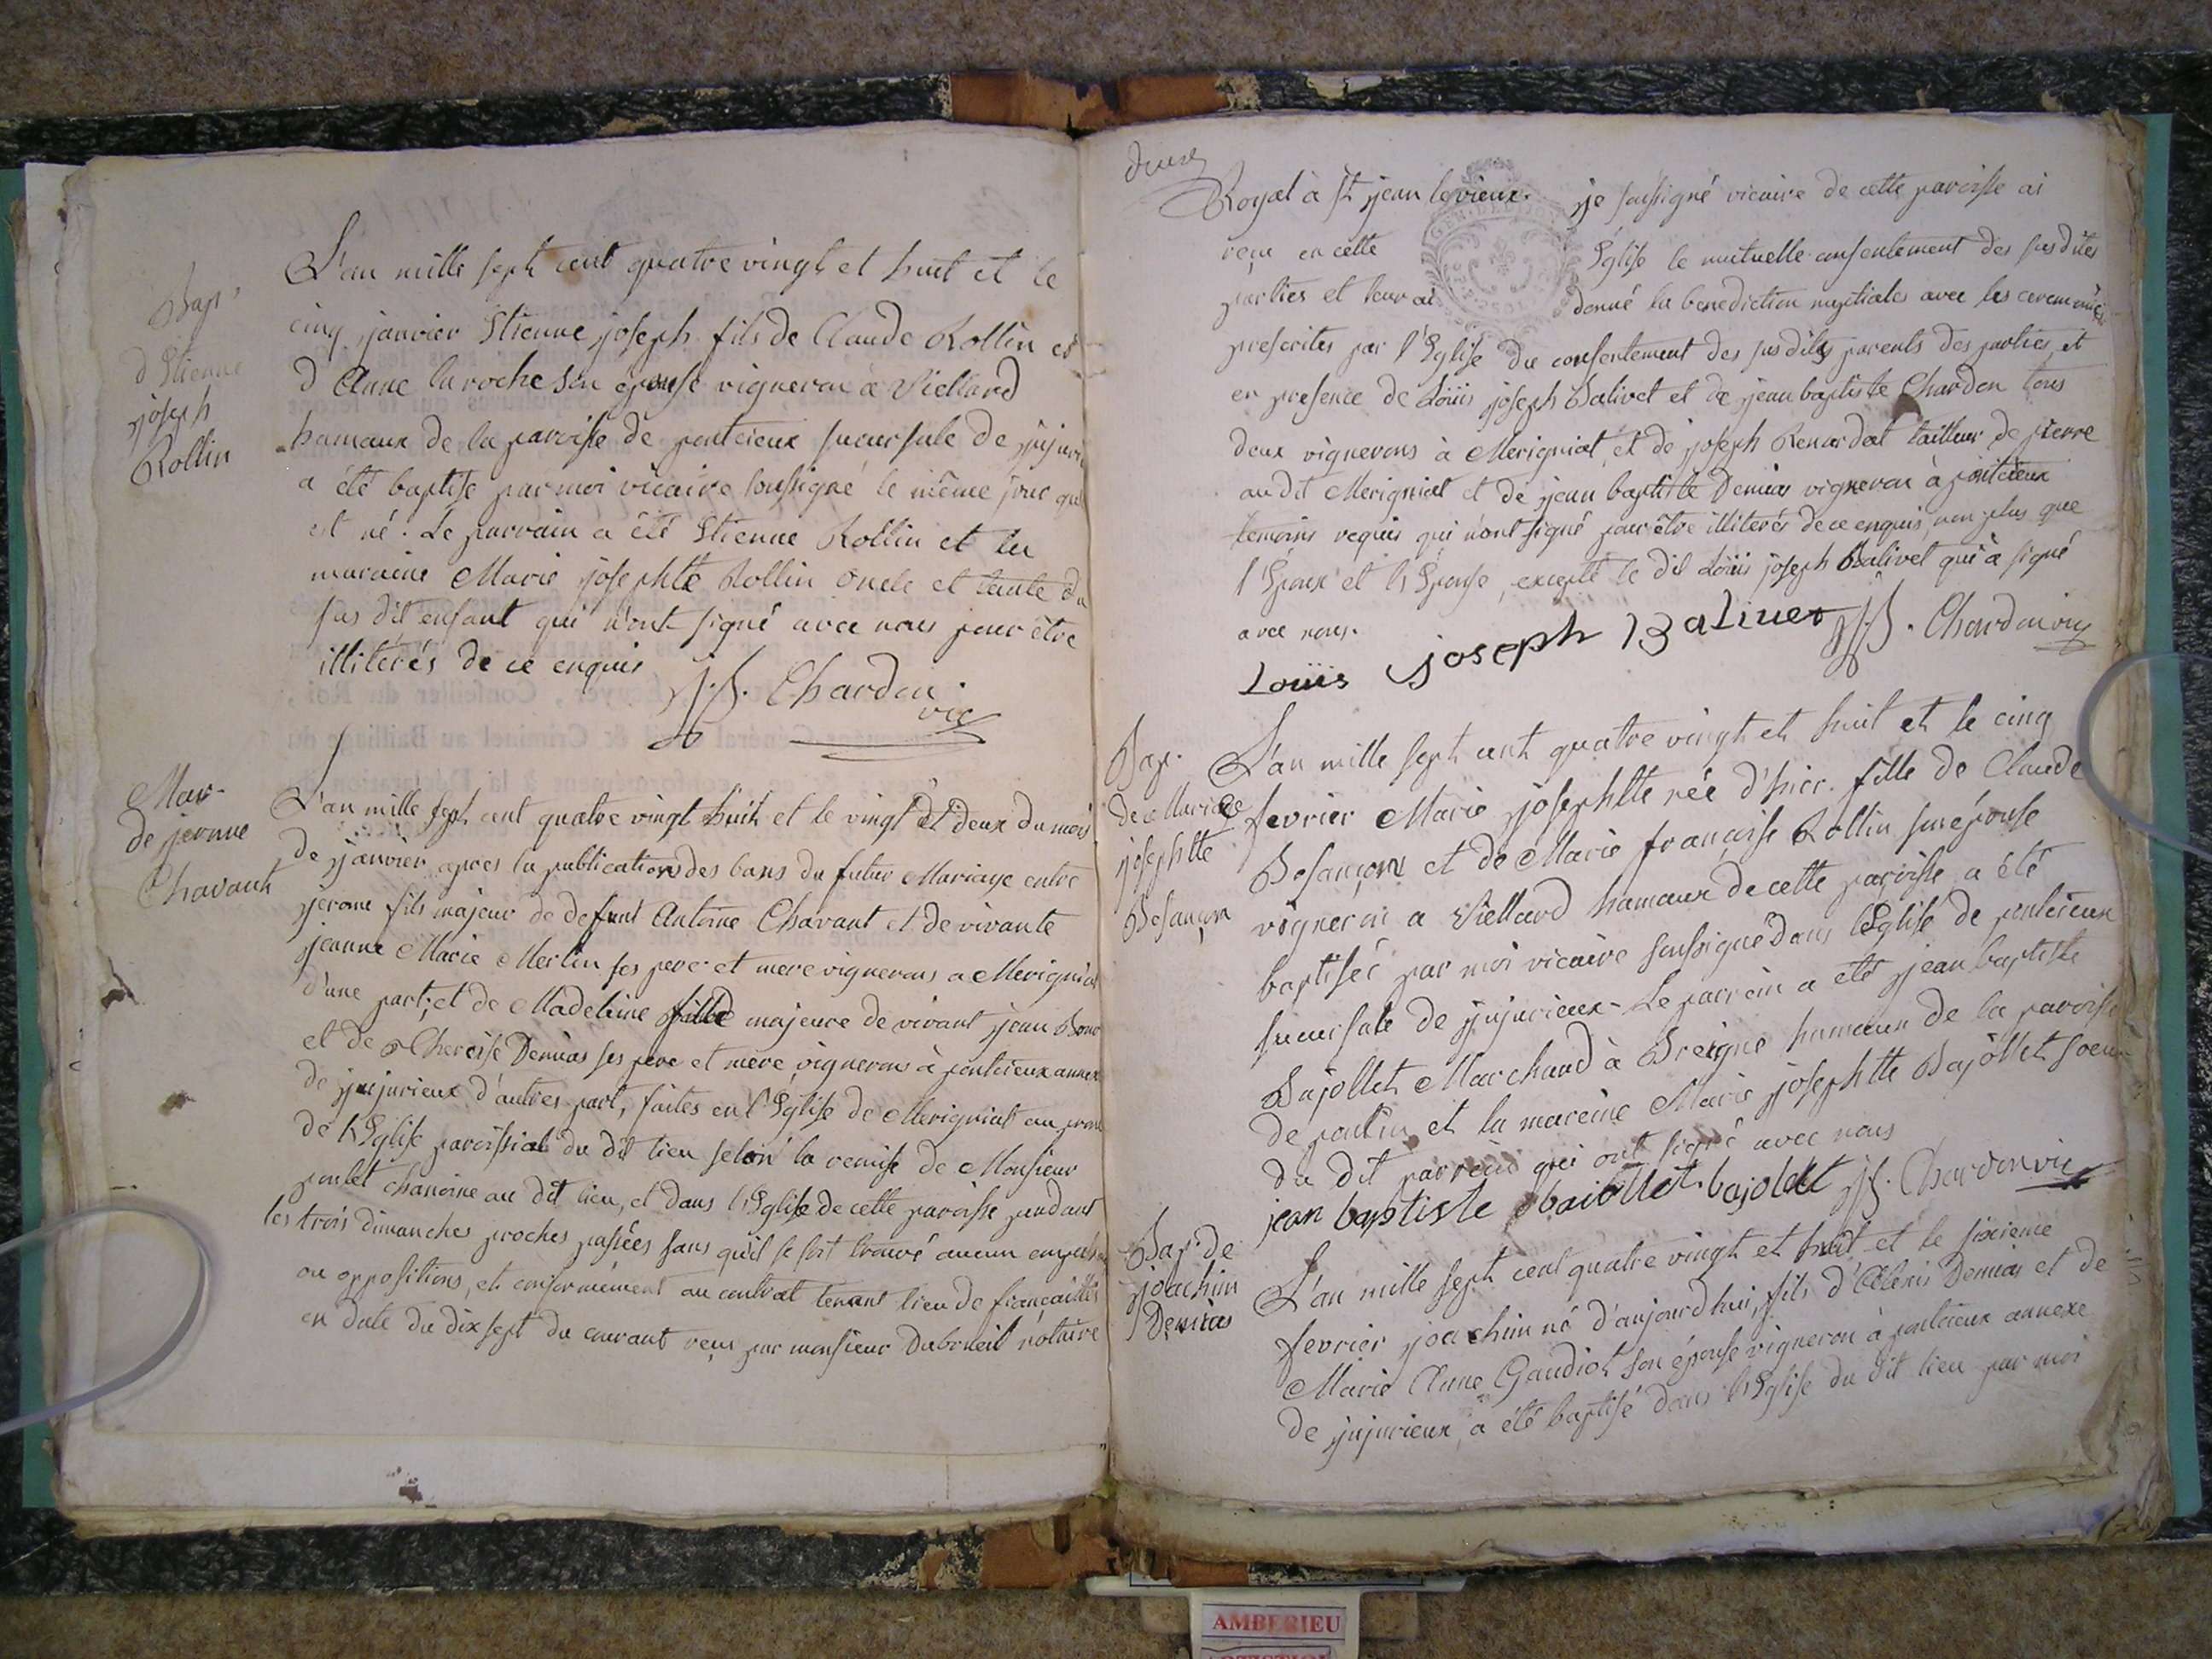 Bap.
d'Etienne
joseph
Rollin
L'an mille sept cent quatre vingt et huit et le
cinq janvier Etienne joseph fils de Claude Rollin et
d'Anne laroche son épouse vigneron à Viellard
hamaux de la paroisse de pontcieux sucursale de jujurieu
a été baptisé par moi vicaire soussigné le même jour qu'il
est né. Le parrain a été Etienne Rollin et la
maraine Marie josephte Rollin oncle et tante du
sus dit enfant qui n'ont signé avec nous pour être
illiterés de ce enquis J.F. Chardon
vic
Mar-
de jerome
Chavant
L'an mille sept cent quatre vingt huit et le vingt et deux du mois
de janvier apres la publications des bans du futur Mariage entre
jerome fils majeur de defunt Antoine Chavant et de vivante
jeanne Marie Merlin ses pere et mere vignerons a Merigniat
d'une part; et de Madeleine fille majeure de vivant jean
et de Therèse Demias ses pere et mere vignerons à pontcieux annexe
de jujurieux d'autres part, faites en l'Eglise de Merigniat au prone
de l'Eglise paroissial du dit lieu selon la remise de Monsieur
poulet chanoine au dit lieu, et dans l'Eglise de cette paroisse pendant
les trois dimanches proches passées sans qu'il se soit trouvé aucun
ou oppositions, et conformément au contrat tenant lieu de fiançailles
en date du dix sept du courant reçu par monsieur Dubreuil notaire
deux
Royal à St jean le vieux. je soussigné vicaire de cette paroisse ai
reçu en cette Eglise le mutuelle consentement des sus dites
parties et leur ai donné la benediction nuptiales avec les ceremonies
prescrites par l'Eglise du consentement des sus dits parents des parties et
en presence de Loüis joseph Balivet et de jean baptiste Chardon tous
deux vignerons à Merigniat, et de joseph Renardat tailleur de pierre
au dit Merigniat et de jean baptiste Demias vigneron à pontcieux
temoins requis qui n'ont signé pour être illiterés de ce enquis, non plus que
l'Epoux et l'Epouse, excepté le dit Loüis joseph Balivet qui à signé
avec nous.
Loüis joseph Balivet J.F. Chardon vic
Bap.
de Marie
josephtte
Besançon
L'an mille sept cent quatre vingt et huit et le cinq
fevrier Marie josephtte née d'hier fille de Claude
Besançon et de Marie françoise Rollin son épouse
vigneron a Viellard hamaux de cette paroisse a été
baptisée par moi vicaire soussigné dans l'Eglise de pontcieux
sucursale de jujurieux. Le parrain a été jean baptiste
Bajollet Marchand à Breigne hamaux de la paroisse
de poncin, et la mareine Marie josephtte Bajollet soeur
du dit parrein qui ont signé avec nous
jean baptiste baiollet bajolet J.F. Chardon vic
Bap. de
joachim
Demias
L'an mille sept cent quatre vingt et huit et le sixieme
fevrier joachim né d'aujourdhui, fils d'Aléxis Demias et de
Marie Anne Gaudiot son épouse vigneron à pontcieux annexe
de jujurieux, a été baptisé dans l'Eglise du dit lieu par moi
AMBERIEU